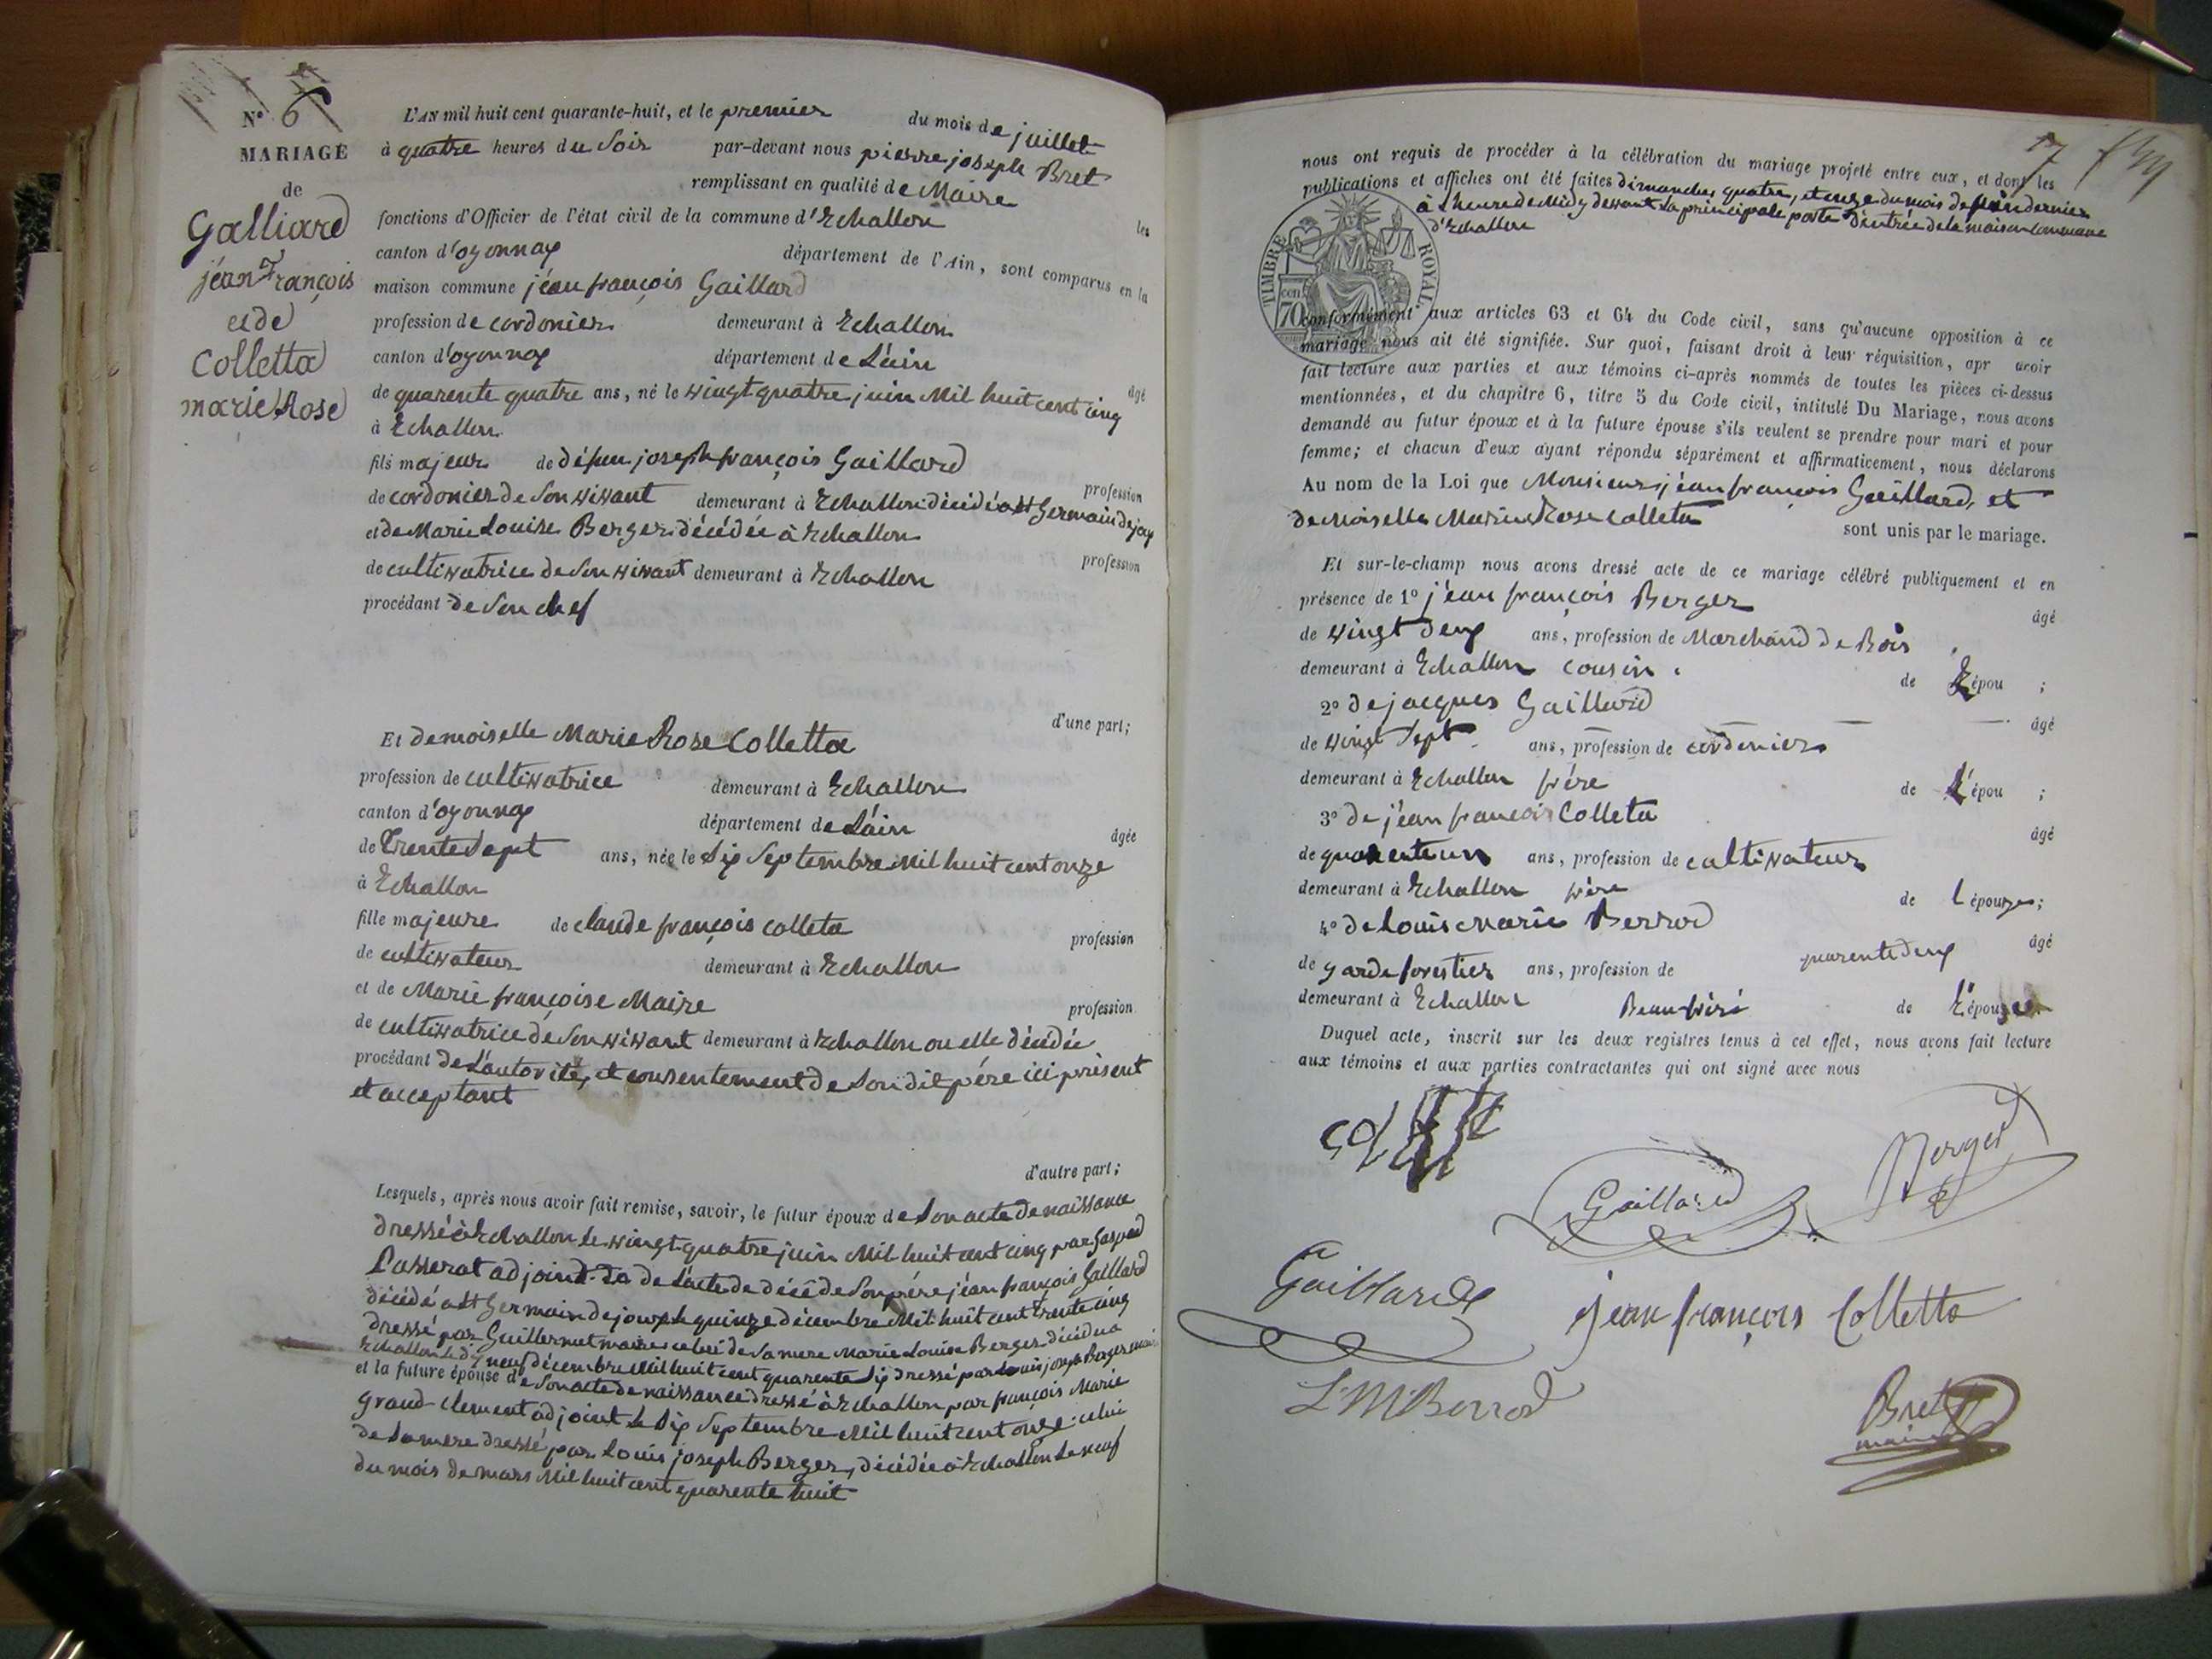 N° 6
MARIAGE
de
Galliard
jéan François
et de
Colletta
marie Rose
L'AN mil huit cent quarante-huit, et le premier du mois de juillet
à quatre heures du soir par-devant nous pierre joseph Bret
remplissant en qualité de Maire les
fonctions d'Officier de l'état civil de la commune d'Echallon
canton d'oyonnax département de l'Ain, sont comparus en la
maison commune jéan françois Gaillard
profession de cordonier demeurant à Echallon
canton d'oyonnax département de L'áin âgé
de quarente quatre ans, né le vingt quatre juin Mil huit cent cinq
à Echallon
fils majeur de défun joseph françois Gaillard profession
de cordonier de son vivant demeurant à Echallon décidé a St Germain de joux
et de Marie Louise Berger décédée à Echallon profession
de cultivatrice de son vivant demeurant à Echallon
procédant de son chef
d'une part;
Et demoiselle Marie Rose Colletta
profession de cultivatrice demeurant à Echallon
canton d'oyonnax département de L'áin âgée
de Trente Sept ans, née le dix Septembre Mil huit cent onze
à Echallon
fille majeure de claude françois colleta profession
de cultivateur demeurant à Echallon
et de Marie françoise Maire profession
de cultivatrice de son vivant demeurant à Echallon ou elle décédée
procédant de L'autorité, et consentement de son dit pére ici présent
et acceptant
d'autre part;
Lesquels, après nous avoir fait remise, savoir, le futur époux de son acte de naissance
dressé à Echallon le vingt quatre juin Mil huit cent cinq par Gaspard
Passerat adjoind de L'acte de décê de son pére jéan françois Gaillard
décédé a St Germain de joux le quinze décembre Mil huit cent trente cinq
dressé par Guillermet maire celui de sa mere Marie Louise Berger décédu a
Echallon le dix neuf décembre Mil huit cent quarente six dressé par Louis joseph Berger maire
et la future épouse de son acte de naissance dressé à Echallon par françois Marie
grand clement adjoint le dix Septembre Mil huit cent onze celui
de sa mere dressé par Louis joseph Berger, décédée à Echallon le neuf
du mois de mars Mil huit cent quarente huit
7
nous ont requis de procéder à la célébration du mariage projeté entre eux, et dont les
publications et affiches ont été faites dimanches quatre, et onze du mois de juin dernier
à L'heure de Midy devant la principale porte d'entrée de la maison commune
d'Echallon
TIMBRE ROYAL
70 cen
conformément aux articles 63 et 64 du Code civil, sans qu'aucune opposition à ce
mariage nous ait été signifiée. Sur quoi, faisant droit à leur réquisition, apr avoir
fait lecture aux parties et aux témoins ci-après nommés de toutes les pièces ci-dessus
mentionnées, et du chapitre 6, titre 5 du Code civil, intitulé Du Mariage, nous avons
demandé au futur époux et à la future épouse s'ils veulent se prendre pour mari et pour
femme; et chacun d'eux ayant répondu séparément et affirmativement, nous déclarons
Au nom de la Loi que Monsieur jéan françois Gaillard, et
demoiselle Marie Rose colleta sont unis par le mariage.
Et sur-le-champ nous avons dressé acte de ce mariage célébré publiquement et en
présence de 1° jéan françois Berger âgé
de vingt deux ans, profession de Marchand de Bois
demeurant à Echallon cousin de L'épou ;
2° de jacques Gaillard âgé
de vingt Sept ans, profession de cordonier
demeurant à Echallon frére de L'épou ;
3° de jéan françois Colleta âgé
de quarente un ans, profession de cultivateur
demeurant à Echallon frére de l épouze;
4° de Louis Marie Berrod âgé
de garde forestier ans, profession de quarente deux
demeurant à Echallon Beau frére de L'épouze
Duquel acte, inscrit sur les deux registres tenus à cet effet, nous avons fait lecture
aux témoins et aux parties contractantes qui ont signé avec nous
Berger
Gaillard
Gaillard
jean françois Colletta
L M Berrod
Bret
maire